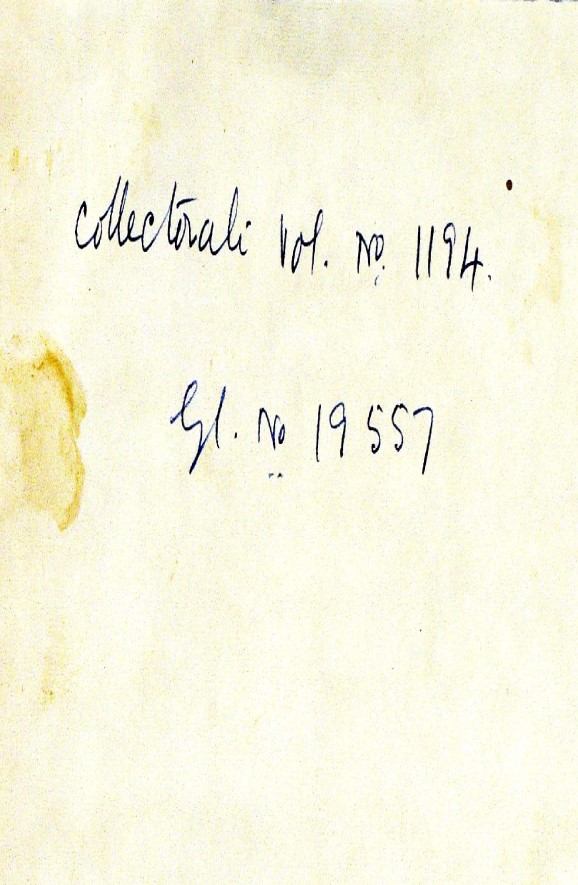 Collectorali Vol. No. 1194.
Gl. No 19557